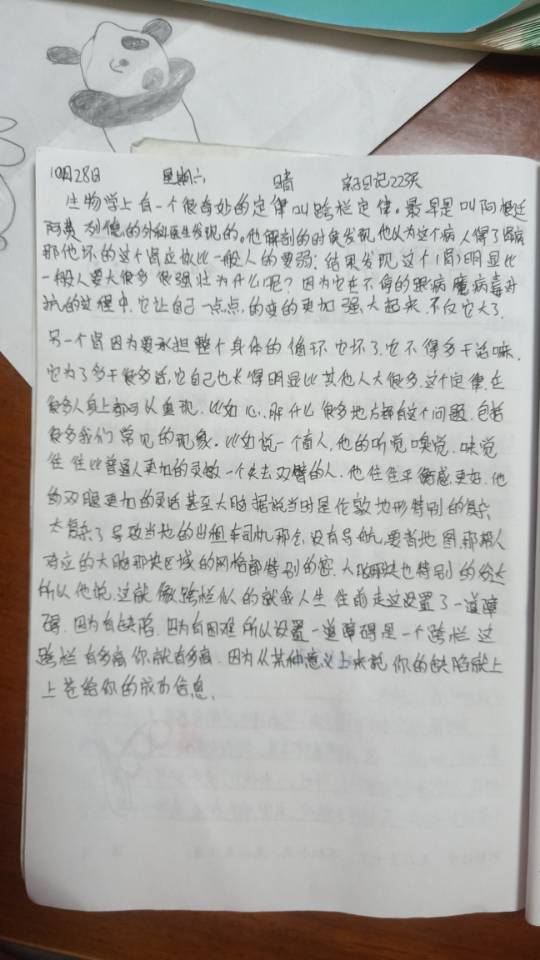 10月28日 星期六 晴 亲子日记223天
生物学上有一个很奇妙的定律叫跨栏定律。最早是叫阿根廷
阿费列德的外科医生发现的。他解剖的时候发现,他以为这个病人得了肾病
那他坏的这个肾应该比一般人的要弱;结果发现这个(肾)明显比
一般人要大很多 很强壮为什么呢?因为它在不停的跟病魔病毒对
抗的过程中,它让自己一点点,的变的更加强大起来,不仅它大了,
另一个肾因为要承担整个身体的循环,它坏了,它不得多干活嘛,
它为了多干很多活,它自己也长得明显比其他人大很多,这个定律,在
很多人身上都可以重现,比如心,肺什么很多地方都有这个问题,包括
很多我们常见的现象。比如说一个盲人,他的听觉嗅觉,味觉
往往比普通人更加的灵敏一个失去双臂的人,他往往平衡感更好,他
的双腿更加的灵活甚至大脑据说当时是伦敦地形特别的复杂
太复杂了导致当地的出租车司机那会,没有导航,要背地图,那帮人
对应的大脑那块区域的网络都特别的密,大脑那块也特别的发达
所以他说,这就像跨栏似的就我人生往前走这设置了一道障
碍,因为有缺陷,因为有困难所以设置一道障碍是一个跨栏 这
跨栏有多高你就有多高,因为从某种意义上来说你的缺陷就上
上苍给你的成功信息.